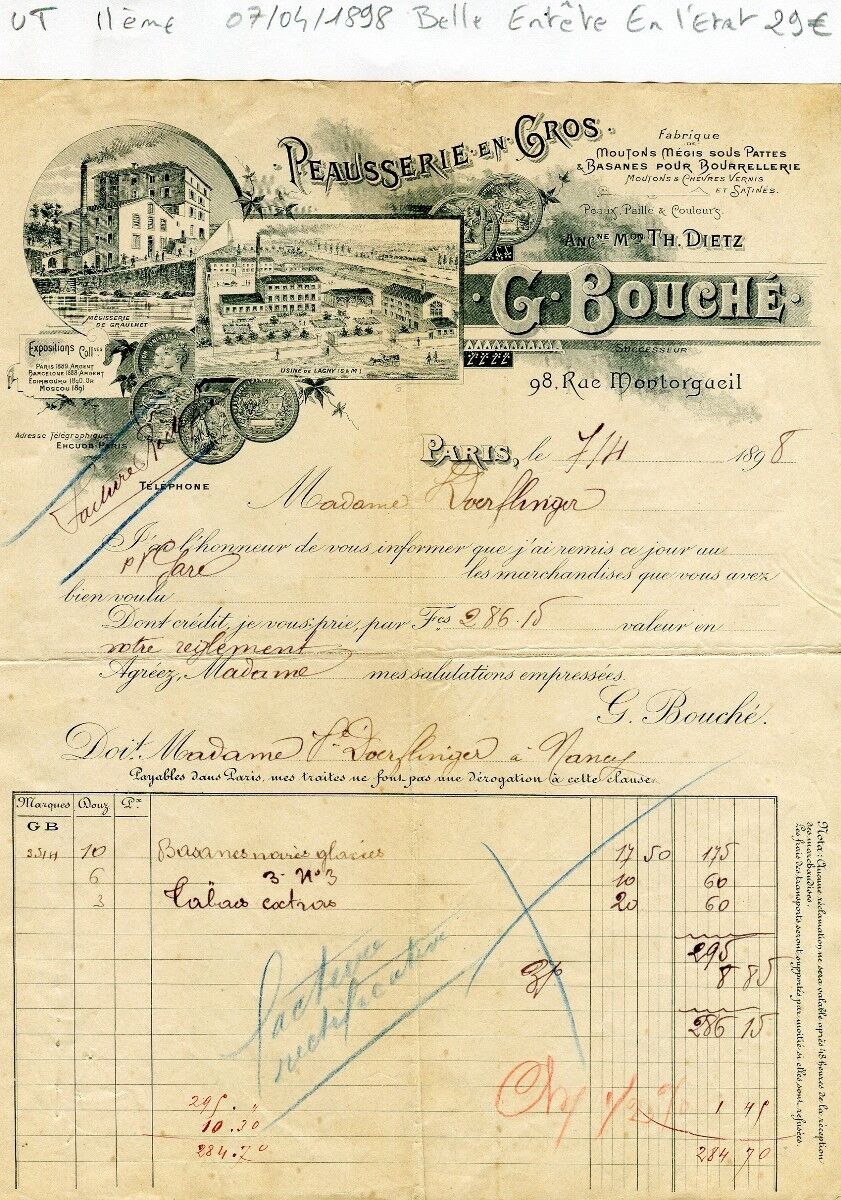 UT 11ème 07/04/1898 Belle Entête En l'Etat 29€
PEAUSSERIE·EN·GROS·
Fabrique
DE
MOUTONS MÉGIS SOUS PATTES
& BASANES POUR BOURRELLERIE
MOUTONS & CHÈVRES VERNIS
ET SATINÉS.
Peaux, Paille & Couleurs.
ANCNE MON TH. DIETZ
·G·BOUCHÉ·
SUCCESSEUR
98, Rue Montorgueil
MÉGISSERIE
DE GRAULHET
USINE DE LAGNY (S&M)
Expositions Collves
PARIS 1889, ARGENT
BARCELONE 1888, ARGENT
EDIMBOURG 1890, OR
MOSCOU 1891
Adresse Télégraphique
ENCUOB-PARIS
TÉLÉPHONE
Facture
PARIS, le 7/4 1898
Madame Doerflinger
J'ai l'honneur de vous informer que j'ai remis ce jour au
Gare les marchandises que vous avez
bien voulu
Dont crédit, je vous prie, par Fcs 286.15 valeur en
notre règlement
Agréez, Madame mes salutations empressées.
G. Bouché.
Doit Madame Doerflinger à Nancy
Payables dans Paris, mes traites ne font pas une dérogation à cette clause.
Marques Douz Pr
GB
10 Basanes noires glacées 17 50 175
6 3- N°3 10 60
3 extras 20 60
295
3% 8 85
286 15
Facture
rectificative
1/2 % 1 45
295. "
10.30
284.70 284 70
Nota: Aucune réclamation ne sera valable après 48 heures de la réception
des marchandises.
Les frais de transports seront supportés par moitié si elles sont refusées.